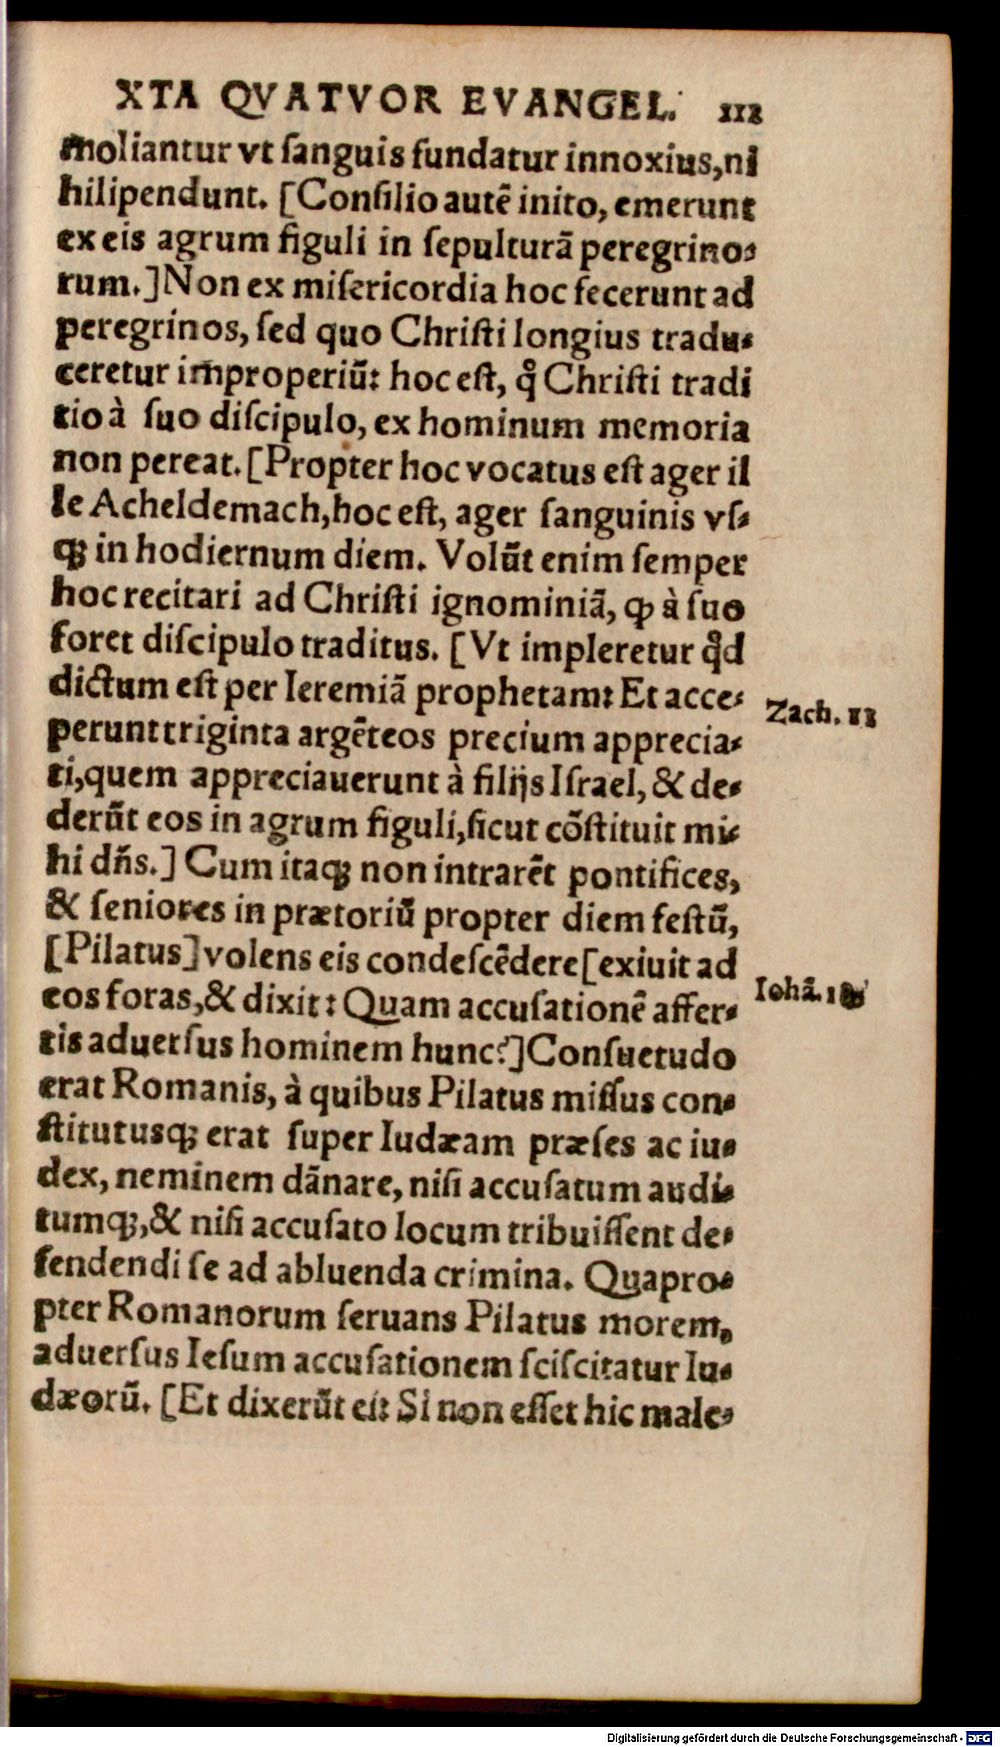 XTA QVATVOR EVANGEL. 112
moliantur vt ſanguis fundatur innoxius,ni
hilipendunt. [Conſilio autē inito, emerunt
ex eis agrum figuli in ſepulturā peregrino-
rum.] Non ex miſericordia hoc fecerunt ad
peregrinos, ſed quo Chriſti longius tradu-
ceretur improperiū: hoc eſt, qͦ Chriſti tradi
tio à ſuo diſcipulo, ex hominum memoria
non pereat. [Propter hoc vocatus eſt ager il
le Acheldemach, hoc eſt, ager ſanguinis vſ-
qꝫ in hodiernum diem. Volūt enim ſemper
hoc recitari ad Chriſti ignominiā, ꝙ à ſuo
foret diſcipulo traditus. [Vt impleretur qd̛
dictum eſt per Ieremiā prophetam: Et acce-
Zach. 11
perunt triginta argēteos precium apprecia-
ti, quem appreciauerunt à filijs Iſrael, & de-
derūt eos in agrum figuli, ſicut cōſtituit mi-
hi dn̄s.] Cum itaqꝫ non intrarēt pontifices,
& ſeniores in prætoriū propter diem feſtū,
[Pilatus] volens eis condeſcēdere [exiuit ad
Iohā. 18
eos foras, & dixit: Quam accuſationē affer-
tis aduerſus hominem hunc?] Conſuetudo
erat Romanis, à quibus Pilatus miſſus con-
ſtitutusqꝫ erat ſuper Iudæam præſes ac iu-
dex, neminem dānare, niſi accuſatum audi-
tumqꝫ, & niſi accuſato locum tribuiſſent de-
fendendi ſe ad abluenda crimina. Quapro-
pter Romanorum ſeruans Pilatus morem,
aduerſus Ieſum accuſationem ſciſcitatur Iu-
dæorū. [Et dixerūt ei: Si non eſſet hic male-
Digitalisierung gefördert durch die Deutsche Forschungsgemeinschaft - DFG